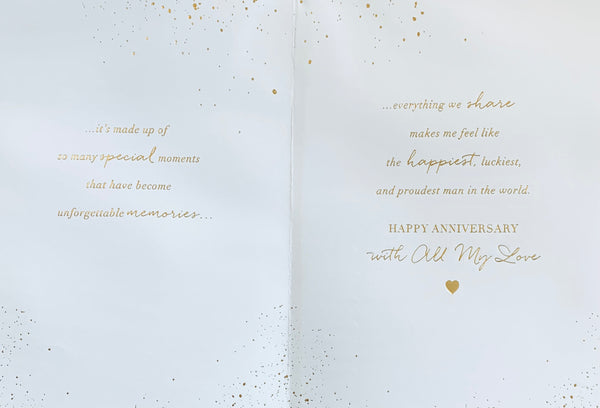 ...it's made up of
so many special moments
that have become
unforgettable memories...
...everything we share
makes me feel like
the happiest, luckiest,
and proudest man in the world.
HAPPY ANNIVERSARY
with All My Love